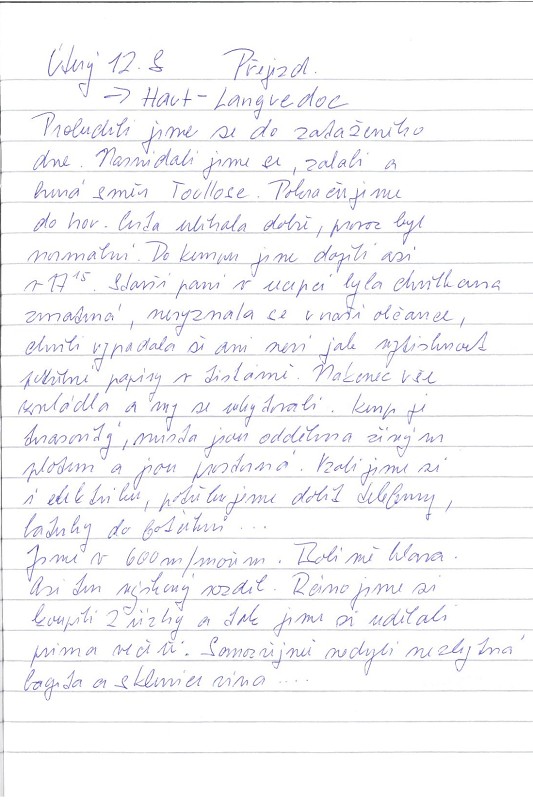 Úterý 12.8 Přejezd.
→ Haut-Languedoc
Probudili jsme se do zataženého
dne. Nasnídali jsme se, zalali a
hurá směr Toullose. Pokračujeme
do hor. Cesta ubíhala dobře, provoz byl
normální. Do kempu jsme dojeli asi
v 17¹⁵. Starší paní v recepci byla chvilkama
zmatená, nevyznala se v naší občance,
chvíli vypadala že ani neví jak vytisknout
potřebné papíry v tiskárně. Nakonec vše
zvládla a my se ubytovali. Kemp je
terasovitý, místa jsou oddělena živým
plotem a jsou prostorná. Vzali jsme si
i elektriku, potřebujeme dobít telefony,
baterky do foťáku ...
Jsme v 600 m/mořem. Bolí mě hlava.
Asi ten výškový rozdíl. Ráno jsme si
koupili 2 řízky a tak jsme si udělali
prima večeři. Samozřejmě nechyběli nezbytná
bageta a sklenice vína ....